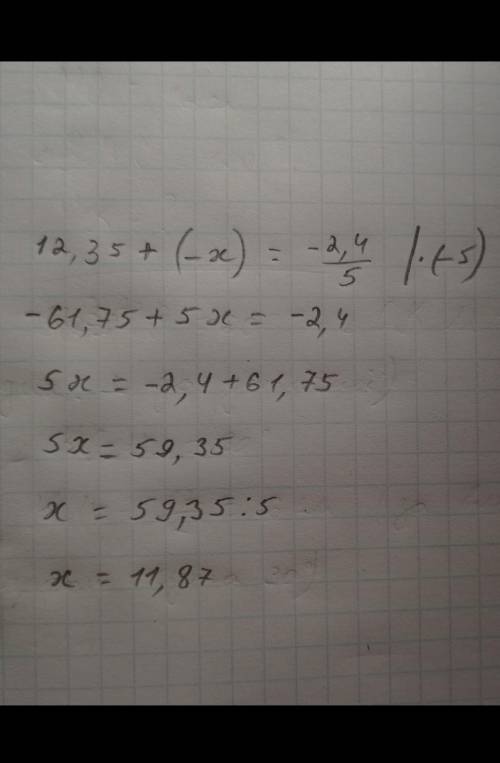 12,35 + (-x) = -2,4/5 | · (-5)
-61,75 + 5x = -2,4
5x = -2,4 + 61,75
5x = 59,35
x = 59,35 : 5
x = 11,87